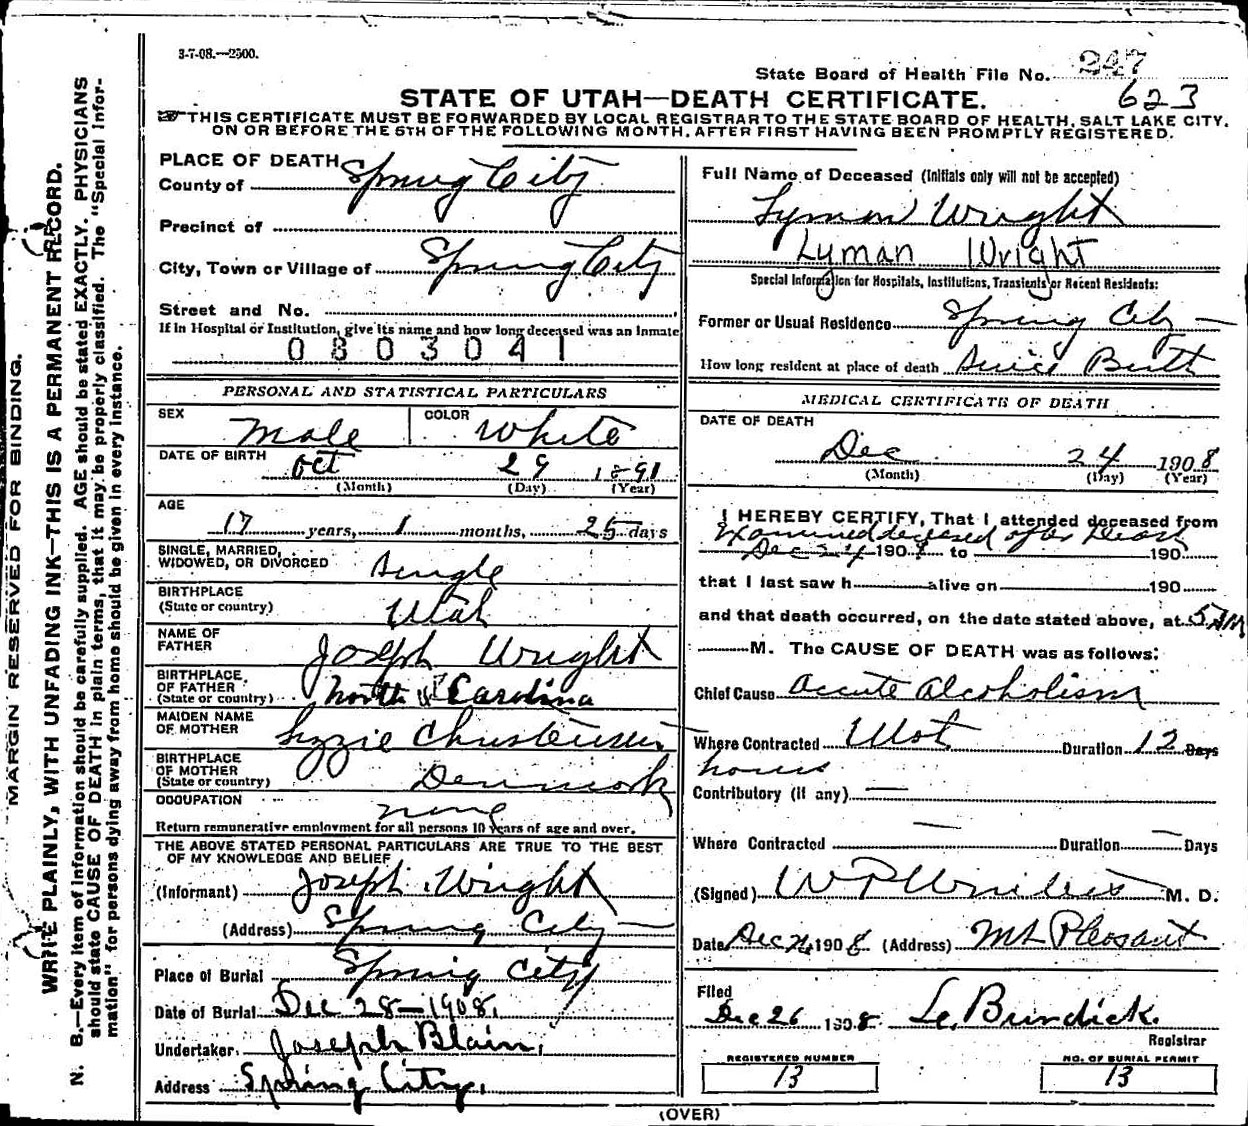 3-7-08.—2500.
State Board of Health File No. 247
623
STATE OF UTAH—DEATH CERTIFICATE.
THIS CERTIFICATE MUST BE FORWARDED BY LOCAL REGISTRAR TO THE STATE BOARD OF HEALTH, SALT LAKE CITY,
ON OR BEFORE THE 5TH OF THE FOLLOWING MONTH, AFTER FIRST HAVING BEEN PROMPTLY REGISTERED.
MARGIN RESERVED FOR BINDING.
WRITE PLAINLY, WITH UNFADING INK—THIS IS A PERMANENT RECORD.
N. B.—Every item of information should be carefully supplied. AGE should be stated EXACTLY. PHYSICIANS
should state CAUSE OF DEATH in plain terms, that it may be properly classified. The "Special Infor-
mation" for persons dying away from home should be given in every instance.
PLACE OF DEATH
County of Spring City
Precinct of
City, Town or Village of Spring City
Street and No.
If in Hospital or Institution, give its name and how long deceased was an inmate
0803041
PERSONAL AND STATISTICAL PARTICULARS
SEX Male COLOR White
DATE OF BIRTH Oct 29 1891
(Month) (Day) (Year)
AGE
17 years, 1 months, 25 days
SINGLE, MARRIED,
WIDOWED, OR DIVORCED Single
BIRTHPLACE
(State or country) Utah
NAME OF
FATHER Joseph Wright
BIRTHPLACE
OF FATHER
(State or country) North Carolina
MAIDEN NAME
OF MOTHER Lizzie Christensen
BIRTHPLACE
OF MOTHER
(State or country) Denmark
OCCUPATION none
Return remunerative employment for all persons 10 years of age and over.
THE ABOVE STATED PERSONAL PARTICULARS ARE TRUE TO THE BEST
OF MY KNOWLEDGE AND BELIEF
(Informant) Joseph Wright
(Address) Spring City
Place of Burial Spring City
Date of Burial Dec 28—1908.
Undertaker Joseph Blain,
Address Spring City,
Full Name of Deceased (Initials only will not be accepted)
Lyman Wright
Lyman Wright
Special Information for Hospitals, Institutions, Transients or Recent Residents:
Former or Usual Residence Spring City
How long resident at place of death Since Birth
MEDICAL CERTIFICATE OF DEATH
DATE OF DEATH
Dec 24 1908
(Month) (Day) (Year)
I HEREBY CERTIFY, That I attended deceased from
Examined deceased after Death
Dec 24 1908 to 190
that I last saw h alive on 190
and that death occurred, on the date stated above, at 5 AM
M. The CAUSE OF DEATH was as follows:
Chief Cause Accute Alcoholism
Where Contracted Utah Duration 12 Days
hours
Contributory (if any) —
Where Contracted — Duration — Days
(Signed) M. D.
Date Dec 24 1908 (Address) Mt Pleasant
Filed
Dec 26 1908 Burdick.
Registrar
REGISTERED NUMBER
13
NO. OF BURIAL PERMIT
13
(OVER)